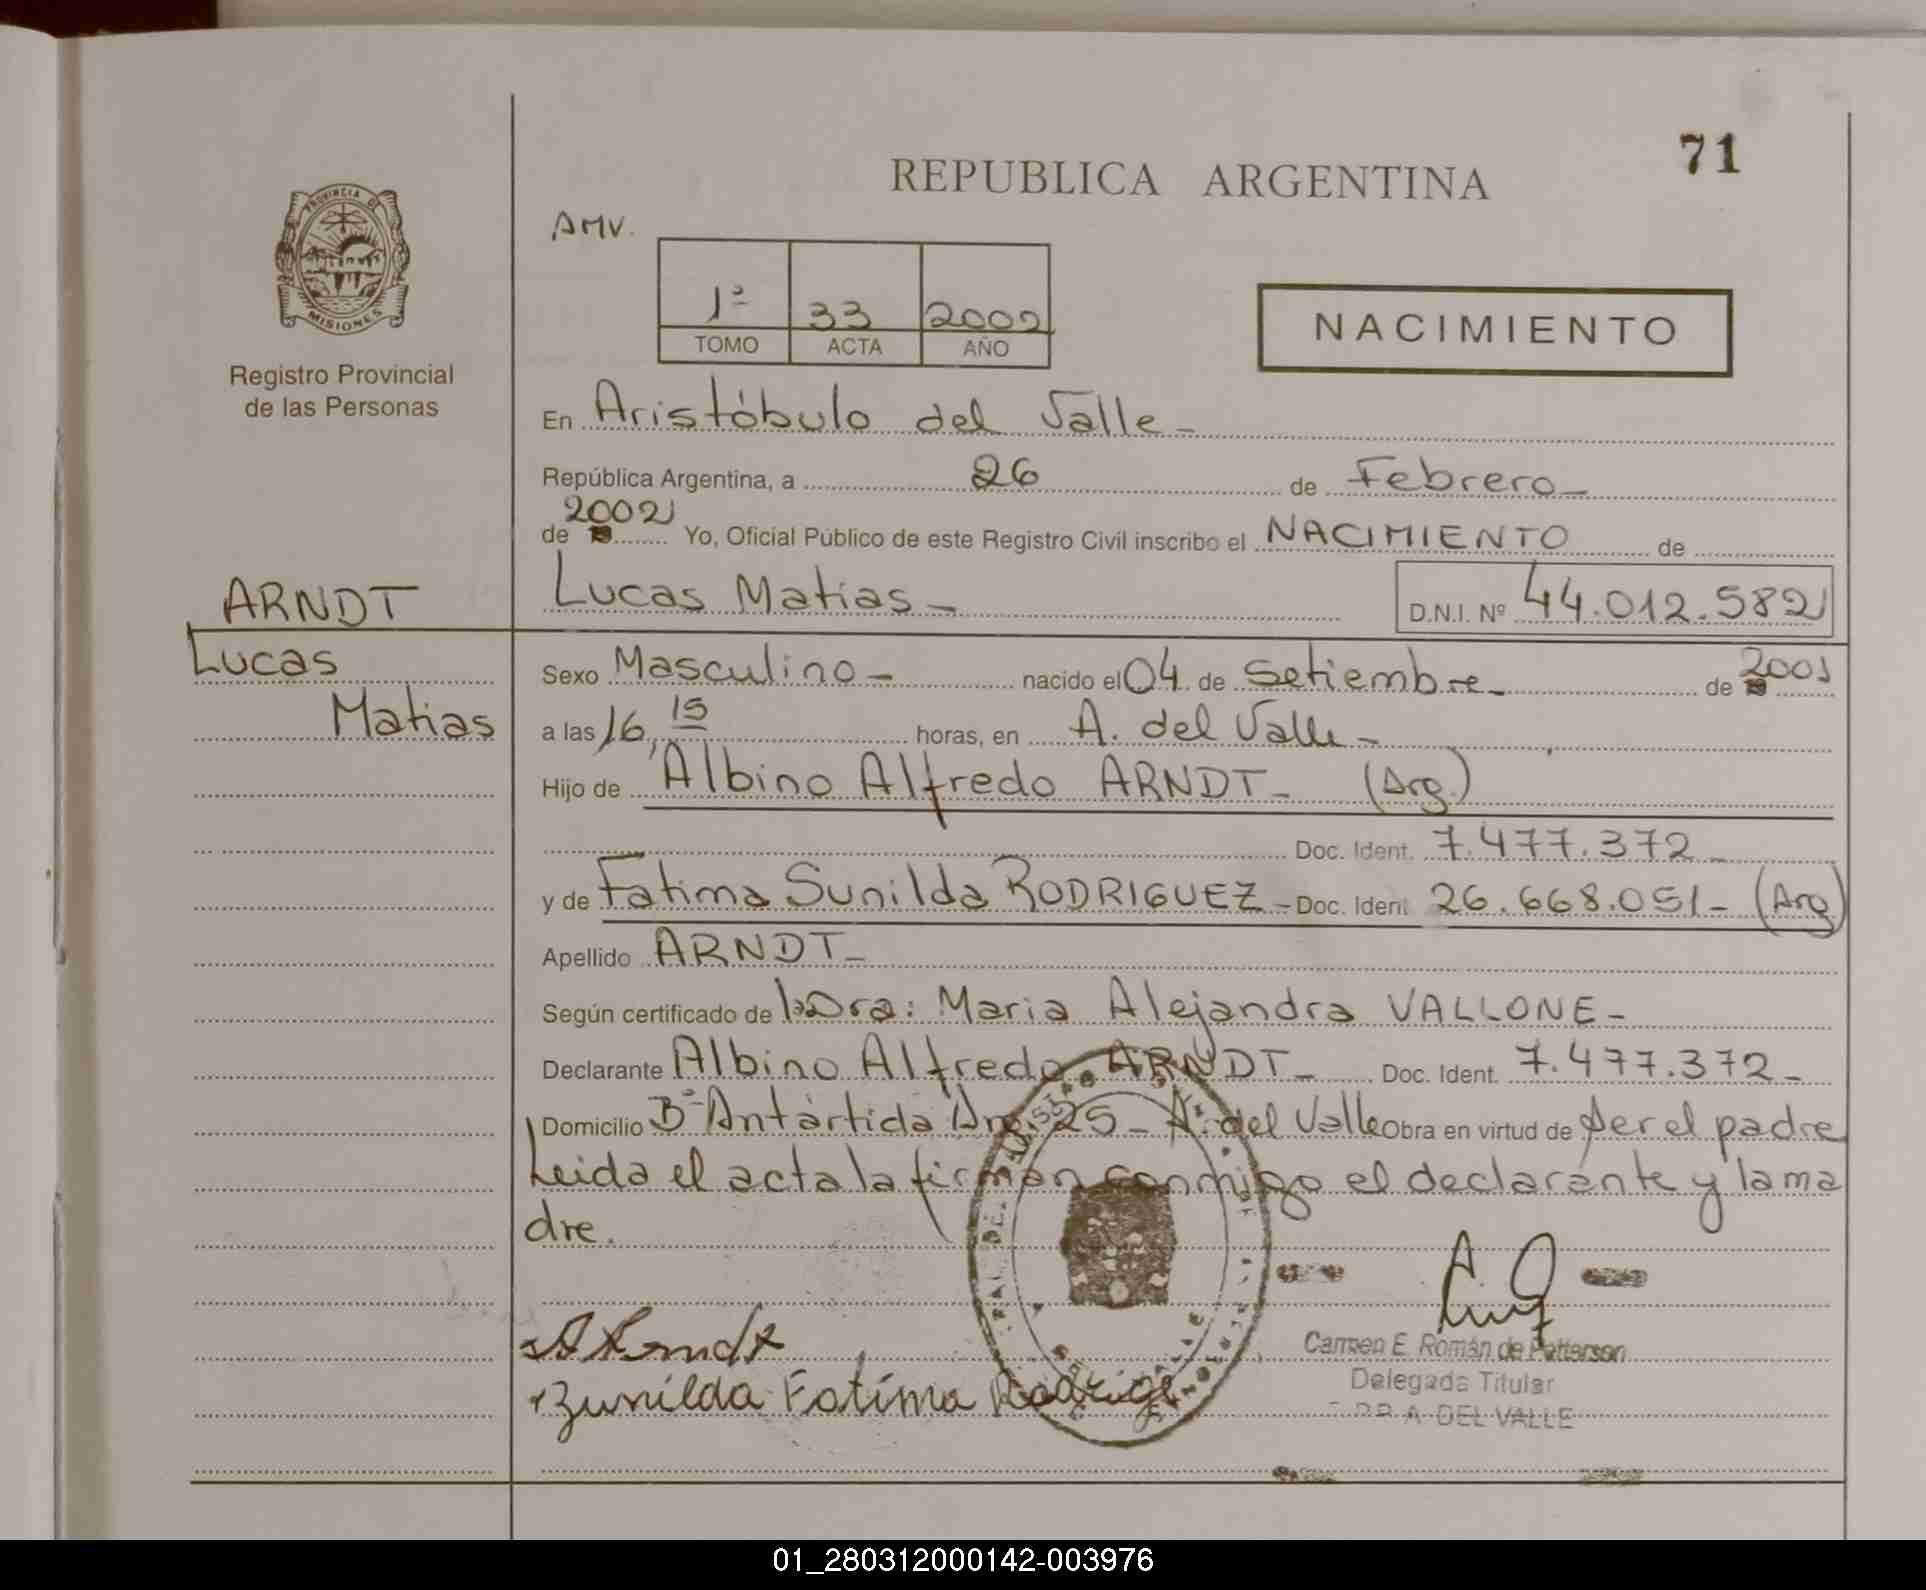 71
REPUBLICA ARGENTINA
PROVINCIA D
MISIONES
Registro Provincial
de las Personas
AMV.
1º 33 2002
TOMO ACTA AÑO
NACIMIENTO
En Aristóbulo del Valle -
República Argentina, a 26 de Febrero -
de 2002 Yo, Oficial Público de este Registro Civil inscribo el NACIMIENTO de
ARNDT
Lucas
Matias
Lucas Matias - D.N.I. Nº 44.012.582
Sexo Masculino - nacido el 04 de Setiembre - de 2001
a las 16,15 horas, en A. del Valle -
Hijo de Albino Alfredo ARNDT - (Arg.)
Doc. Ident. 7.477.372 -
y de Fatima Sunilda RODRIGUEZ - Doc. Ident 26.668.051 - (Arg)
Apellido ARNDT -
Según certificado de la Dra: Maria Alejandra VALLONE -
Declarante Albino Alfredo ARNDT - Doc. Ident. 7.477.372 -
Domicilio Bº Antártida Arg. 25 - A. del Valle Obra en virtud de ser el padre
Leida el acta la firman conmigo el declarante y la ma
dre.
A Arndt
Zunilda Fatima Rodrige
Carmen E. Román de Patterson
Delegada Titular
A. DEL VALLE
01_280312000142-003976